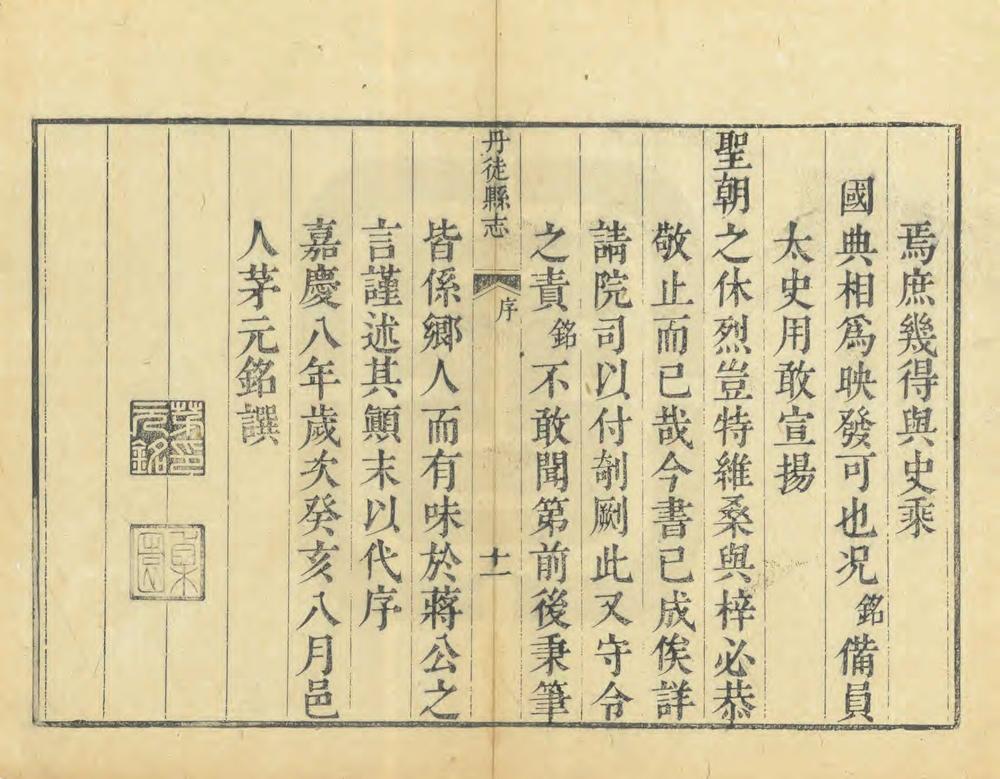 焉庶幾得與史乘
國典相爲映發可也况銘備員
太史用敢宣揚
聖朝之休烈豈特維桑與梓必恭
敬止而已哉今書已成俟詳
請院司以付剞劂此又守令
之責銘不敢聞第前後秉筆
丹徒縣志
序
十一
皆係鄉人而有味於蔣公之
言謹述其顛末以代序
嘉慶八年歲次癸亥八月邑
人茅元銘譔
茅印
元銘